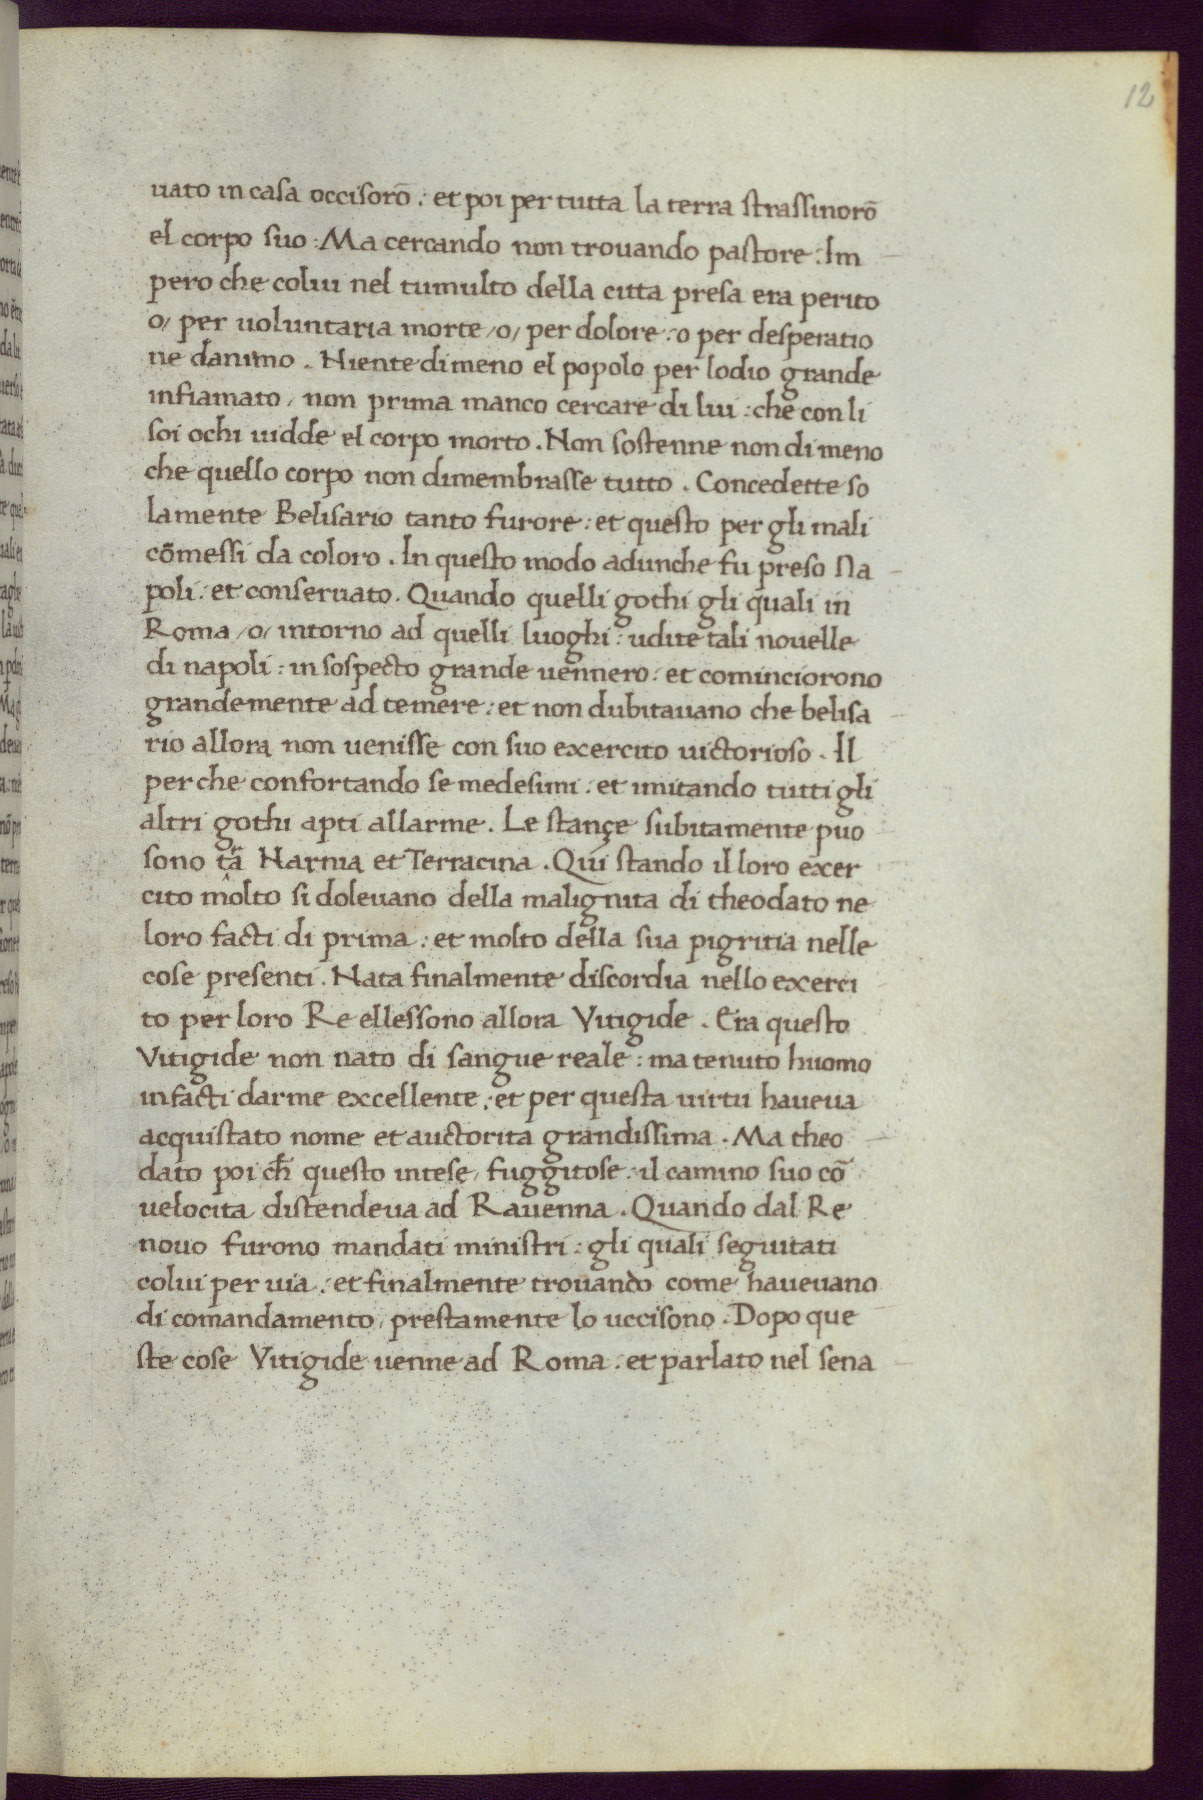 12
uato in casa occisorō : et poi per tutta la terra strassinorō
el corpo suo : Ma cercando non trouando pastore : Im
pero che colui nel tumulto della citta presa era perito
o/ per uoluntaria morte /o/ per dolore : o per desperatio
ne danimo . Niente di meno el popolo per lodio grande
infiamato / non prima manco cercare di lui : che con li
soi ochi uidde el corpo morto . Non sostenne non di meno
che quello corpo non dimembrasse tutto . Concedette so
lamente Belisario tanto furore : et questo per gli mali
cōmessi da coloro . In questo modo adunche fu preso Na
poli : et conseruato . Quando quelli gothi gli quali in
Roma /o/ intorno ad quelli luoghi : udite tali nouelle
di napoli : in sospecto grande uennero : et cominciorono
grandemente ad temere : et non dubitauano che belisa
rio allora non uenisse con suo exercito uictorioso . Il
per che confortando se medesimi : et imitando tutti gli
altri gothi apti allarme . Le stançe subitamente puo
sono tra Narnia et Terracina . Qui stando il loro exer
cito molto si doleuano della malignita di theodato ne
loro facti di prima : et molto della sua pigritia nelle
cose presenti . Nata finalmente discordia nello exerci
to per loro Re ellessono allora Vitigide . Era questo
Vitigide non nato di sangue reale : ma tenuto huomo
in facti darme excellente : et per questa uirtu haueua
acquistato nome et auctorita grandissima . Ma theo
dato poi ch̄ questo intese / fuggitose : il camino suo cō
uelocita distendeua ad Rauenna . Quando dal Re
nouo furono mandati ministri : gli quali seguitati
colui per uia : et finalmente trouando come haueuano
di comandamento / prestamente lo uccisono . Dopo que
ste cose Vitigide uenne ad Roma : et parlato nel sena